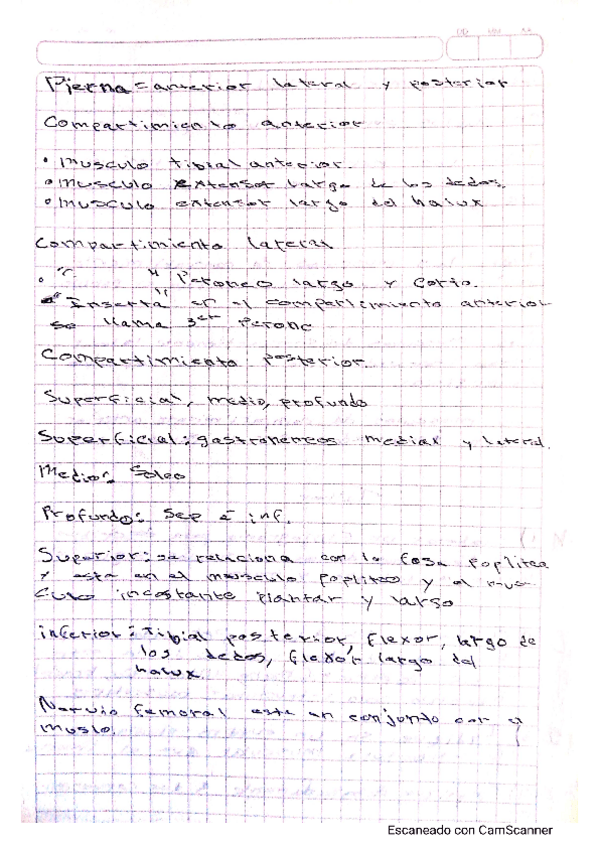 Pierna = anterior lateral y posterior
Compartimiento anterior
• musculo tibial anterior.
• musculo extensor largo de los dedos.
• musculo extensor largo del halux
Compartimiento lateral
• " " Peroneo largo y corto.
Inserta en el compartimiento anterior
se llama 3er Perone
Compartimiento posterior.
Superficial, medio, profundo
Superficial: gastronemeos medial y lateral.
Medio: Soleo
Profundo: Sep e inf.
Superior: se relaciona con la fosa poplitea
y esta en el musculo popliteo y el mus
culo incostante plantar y largo
inferior: Tibial posterior, flexor, largo de
los dedos, flexor largo del
halux.
Nervio femoral esta en conjunto con el
muslo.
Escaneado con CamScanner